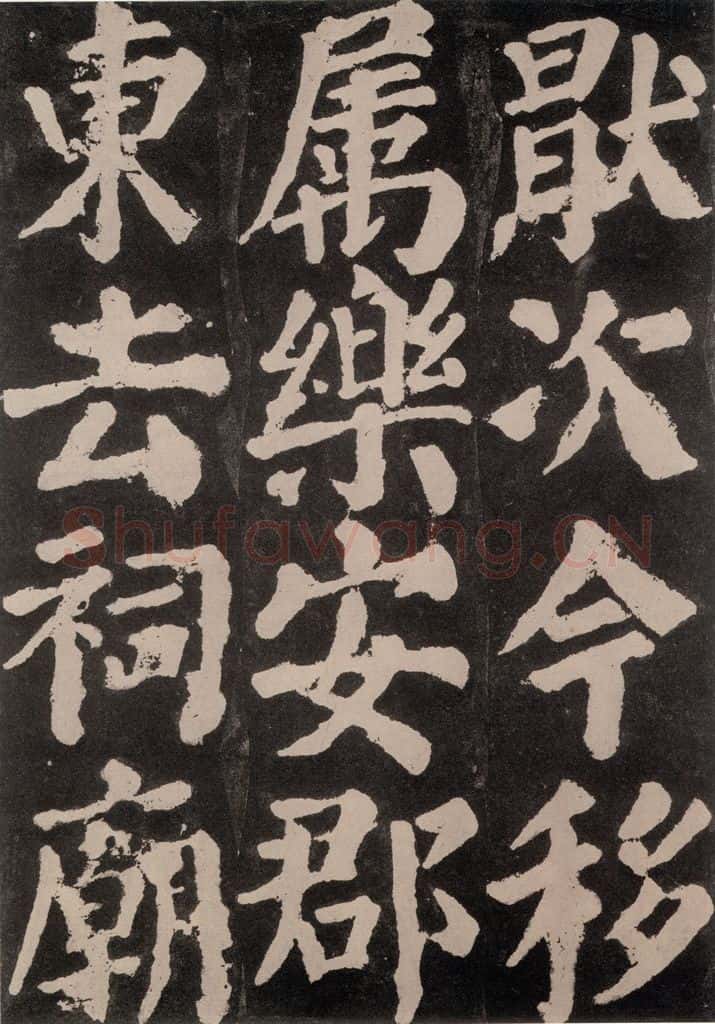 猒次今移
属樂安郡
東去祠廟
Shufawang.CN